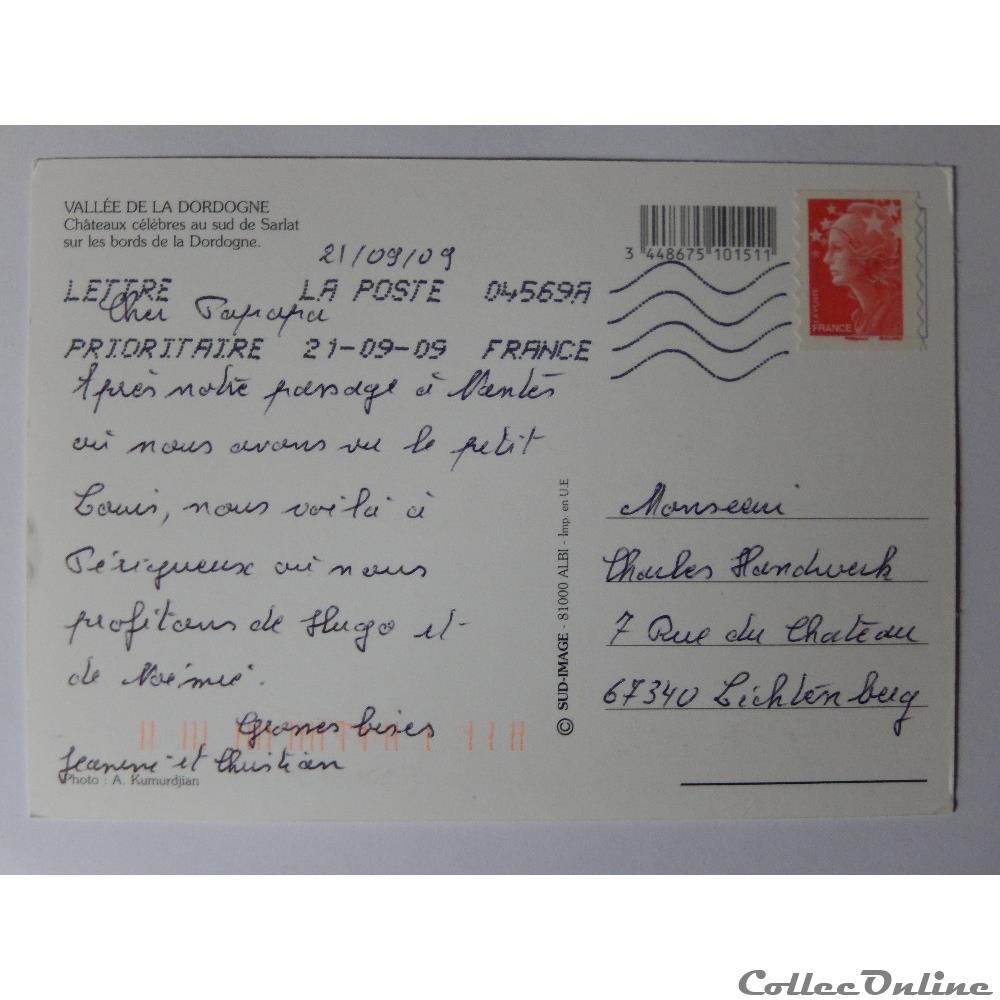 VALLÉE DE LA DORDOGNE
Châteaux célèbres au sud de Sarlat
sur les bords de la Dordogne.
21/09/09
LETTRE LA POSTE 04569A
Cher Papapa
PRIORITAIRE 21-09-09 FRANCE
Après notre passage à Nantes
où nous avons vu le petit
Louis, nous voilà à
Périgueux où nous
profitons de Hugo et
de Noémie.
Grosses bises
Jeanine et Christian
Photo : A. Kumurdjian
© SUD-IMAGE - 81000 ALBI - Imp. en U.E
3 448675 101511
LA POSTE
FRANCE
Monsieur
Charles Handwerk
7 Rue du Chateau
67340 Lichtenberg
CollecOnline